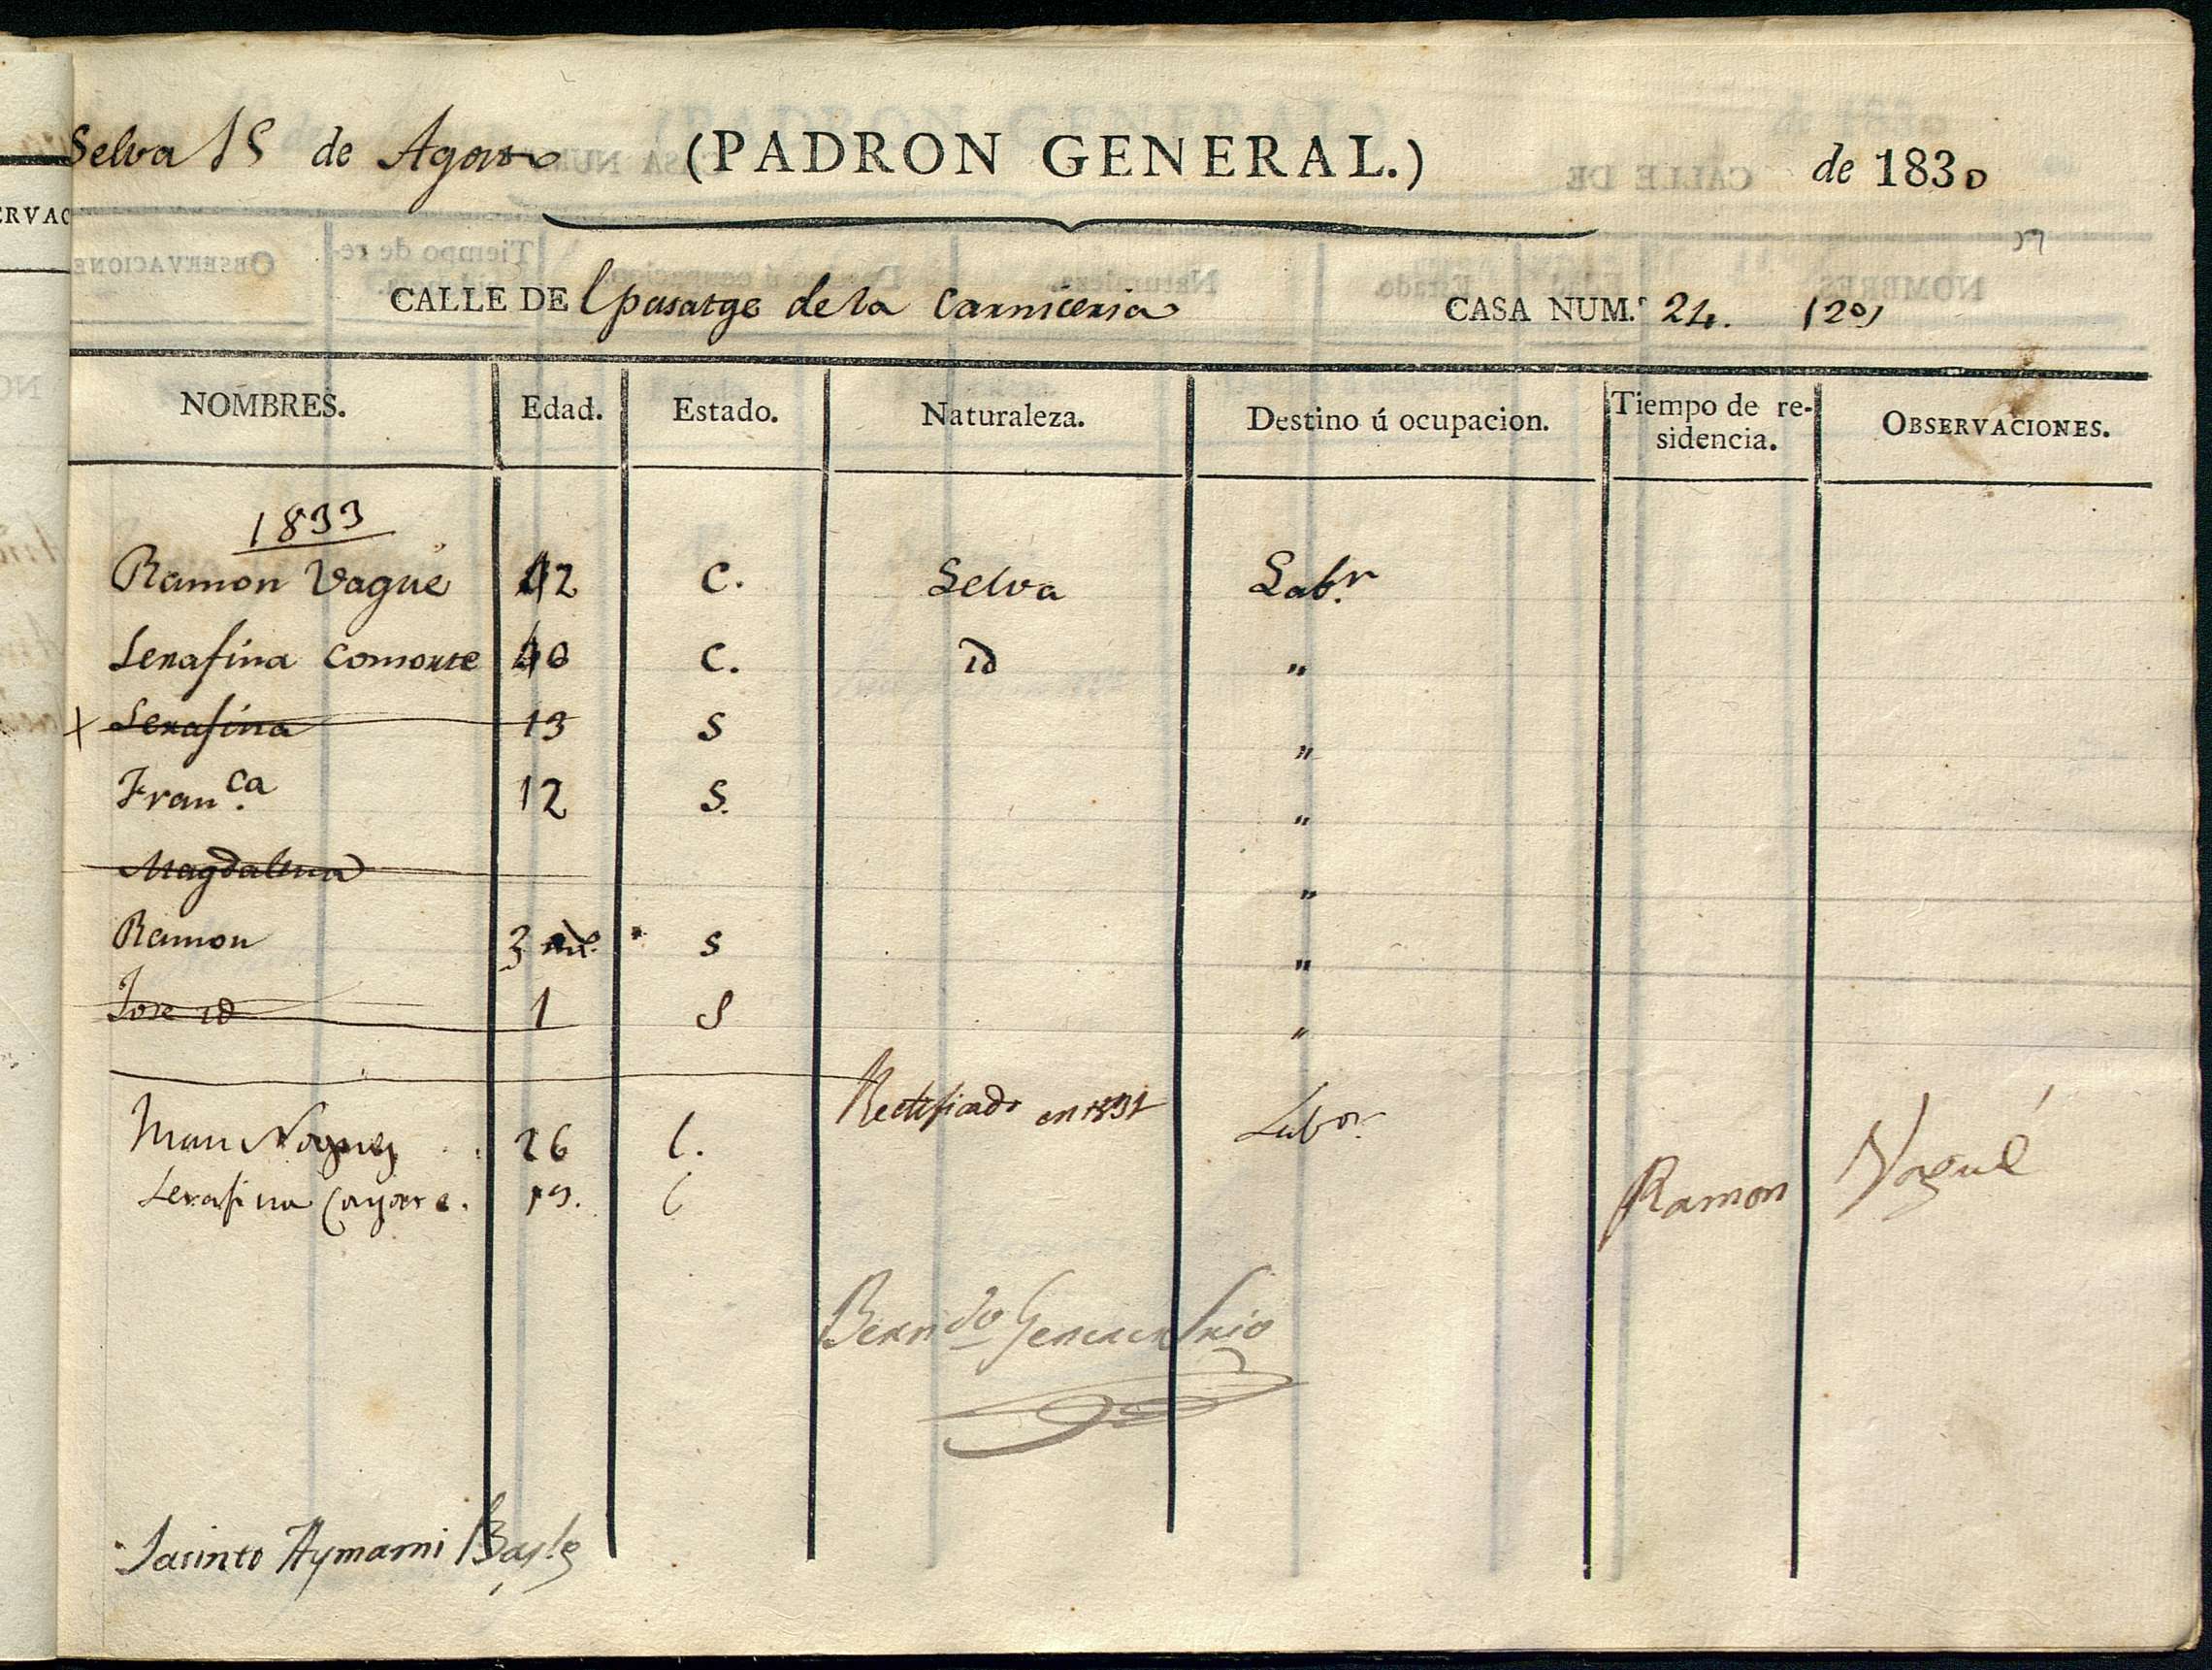 Selva 15 de Agosto (PADRON GENERAL.) de 1830
CALLE DEl pasatge de la Carniceria CASA NUM.º 24. (20)
NOMBRES. Edad. Estado. Naturaleza. Destino ú ocupacion. Tiempo de re-sidencia. OBSERVACIONES.
1833
Ramon Vague 42 C. Selva Labr.
Serafina Comorte 40 C. id "
+ Serafina 13 S "
Fran.ca 12 S. "
Magdalena "
Ramon 3 S "
Jose id 1 S "
Rectificado en 1831
Nogues 26 C. Labor.
Serafina 19. C
Ramon Vagué
Bern.do Srio
Jacinto Aymami Bayle